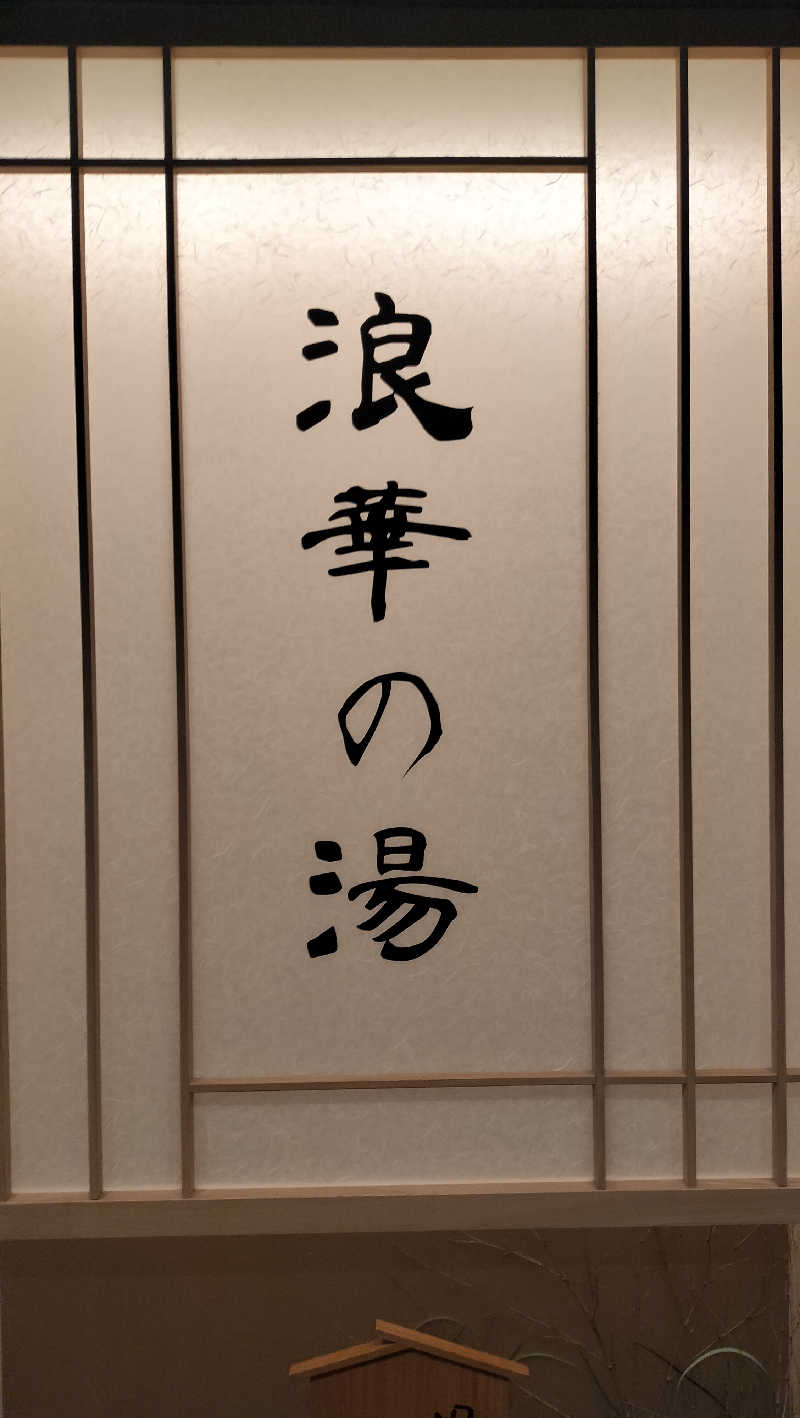 浪華の湯